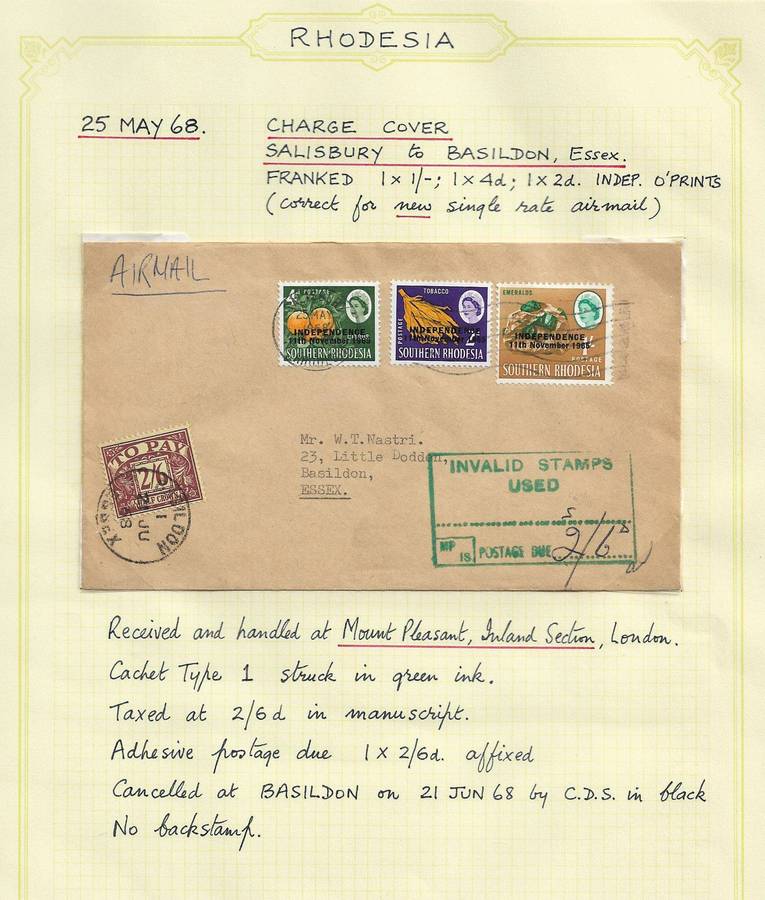 RHODESIA
25 MAY 68. CHARGE COVER
SALISBURY to BASILDON, Essex.
FRANKED 1 x 1/-; 1 x 4d; 1 x 2d. INDEP. O'PRINTS
(correct for new single rate airmail)
AIRMAIL
POSTAGE
25 MAY
INDEPENDENCE
11th November 1965
SOUTHERN RHODESIA
TOBACCO
POSTAGE
INDEPENDENCE
11th November 1965
SOUTHERN RHODESIA
EMERALDS
INDEPENDENCE
11th November 1965
POSTAGE
SOUTHERN RHODESIA
TO PAY
2/6
HALF CROWN
BASILDON
ESSEX
Mr. W.T.Nastri.
23, Little Doddon,
Basildon,
ESSEX.
INVALID STAMPS
USED
MP
18
POSTAGE DUE 2/6
Received and handled at Mount Pleasant, Inland Section, London.
Cachet Type 1 struck in green ink.
Taxed at 2/6d in manuscript.
Adhesive postage due 1 x 2/6d. affixed
Cancelled at BASILDON on 21 JUN 68 by C.D.S. in black
No backstamp.